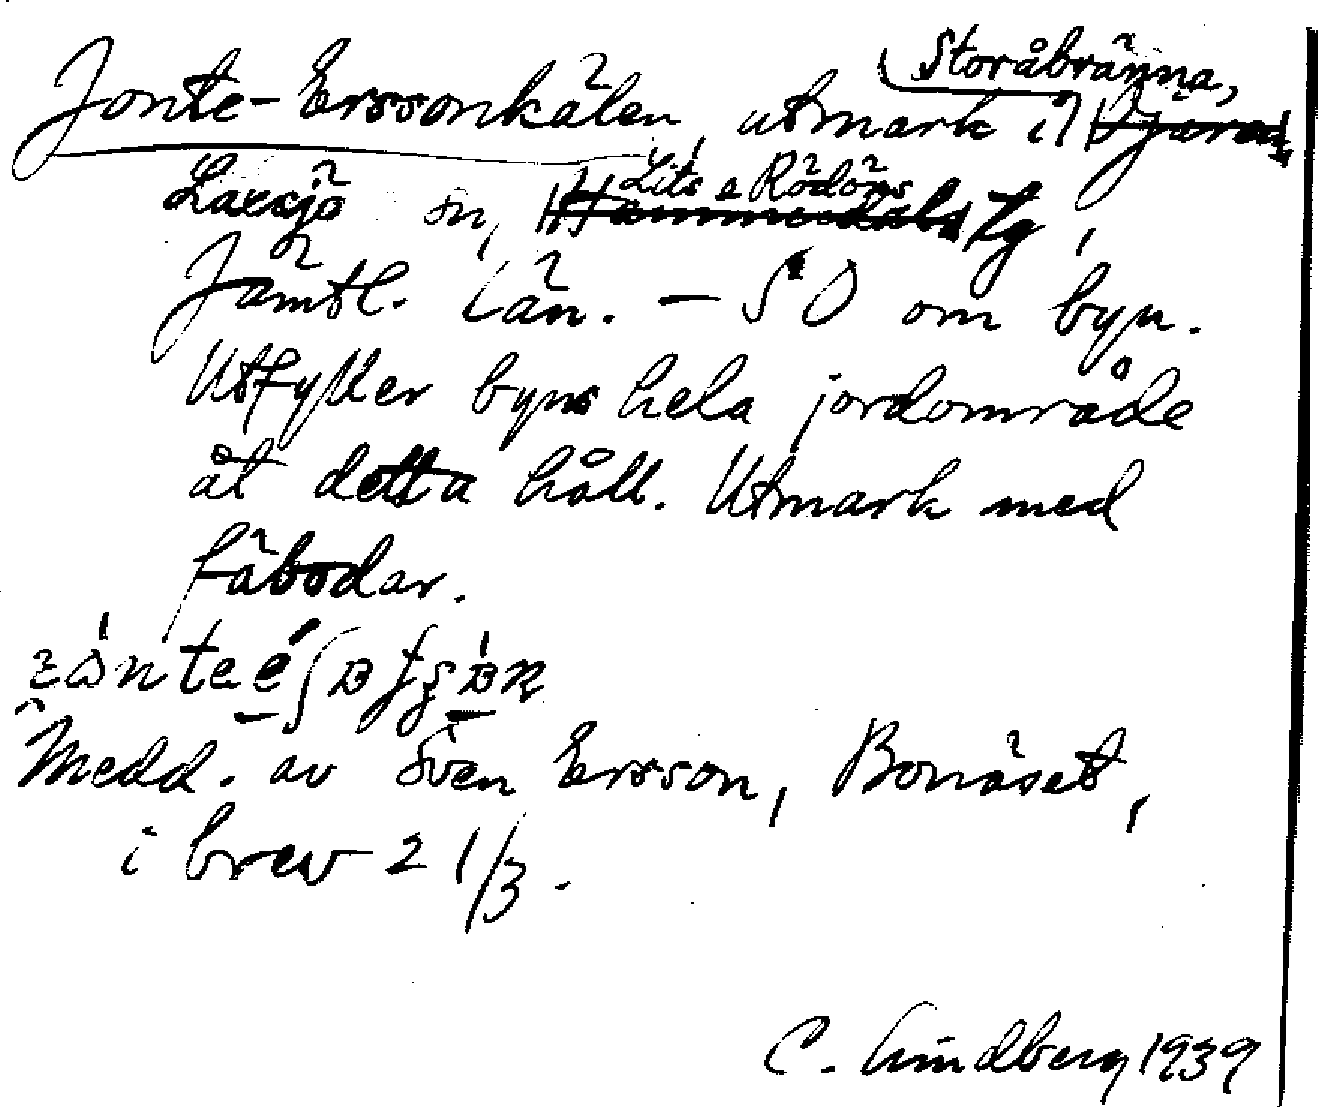 Storåbränna,
Jonte-Erssonkälen, utmark i
Laxsjö sn, Lits o Rödöns tg,
Jämtl. län. – SO om byn.
Utfyller byns hela jordområde
åt detta håll. Utmark med
fäbodar.
Medd. av Sven Ersson, Bonäset,
i brev 21/3.
C. Lindberg 1939